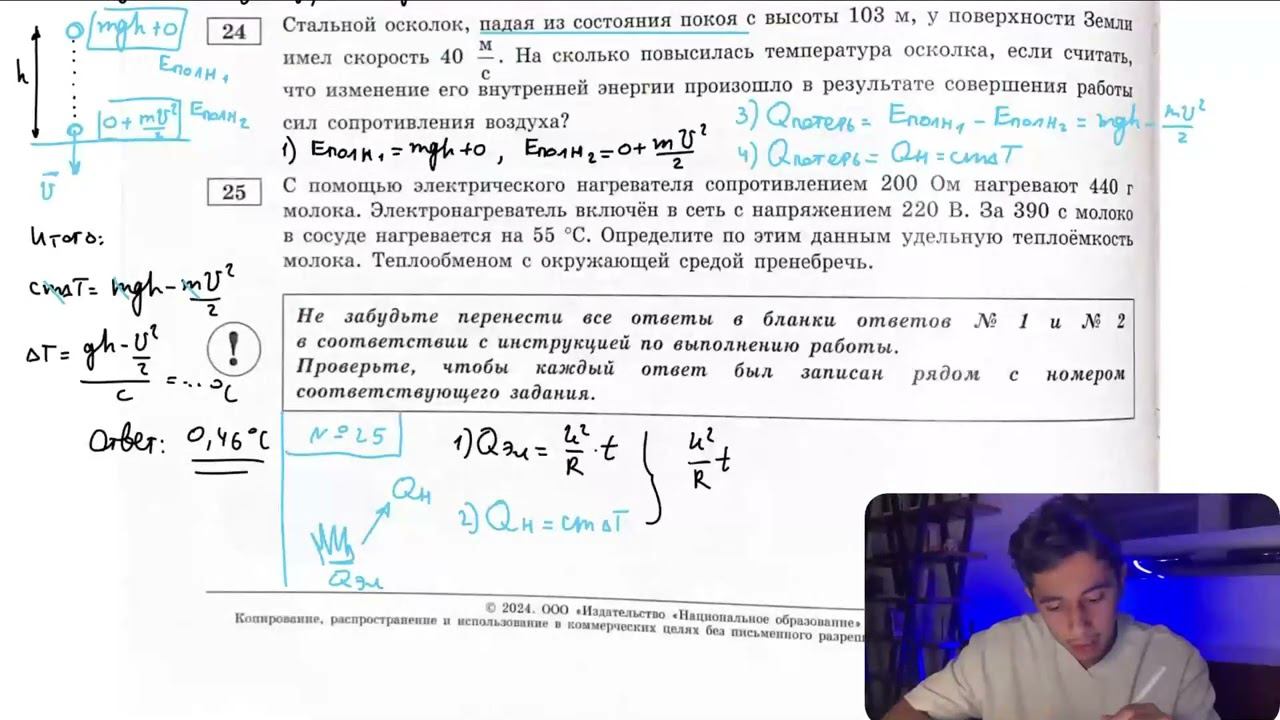 mgh+0
Eполн₁
h
0+mυ²/2 Eполн₂
υ⃗
24
Стальной осколок, падая из состояния покоя с высоты 103 м, у поверхности Земли
имел скорость 40 м/с. На сколько повысилась температура осколка, если считать,
что изменение его внутренней энергии произошло в результате совершения работы
сил сопротивления воздуха?
3) Qпотерь = Eполн₁ − Eполн₂ = mgh − mυ²/2
1) Eполн₁ = mgh+0, Eполн₂ = 0+mυ²/2
4) Qпотерь = Qн = cmΔT
25
С помощью электрического нагревателя сопротивлением 200 Ом нагревают 440 г
молока. Электронагреватель включён в сеть с напряжением 220 В. За 390 с молоко
в сосуде нагревается на 55 °С. Определите по этим данным удельную теплоёмкость
молока. Теплообменом с окружающей средой пренебречь.
Итого:
cmΔT = mgh − mυ²/2
ΔT = (gh − υ²/2)/c = ... °C
Ответ: 0,46°C
!
Не забудьте перенести все ответы в бланки ответов № 1 и № 2
в соответствии с инструкцией по выполнению работы.
Проверьте, чтобы каждый ответ был записан рядом с номером
соответствующего задания.
№25
1) Qэл = u²/R · t
u²/R t
Qн
2) Qн = cmΔT
Qэл
© 2024. ООО «Издательство «Национальное образование»
Копирование, распространение и использование в коммерческих целях без письменного